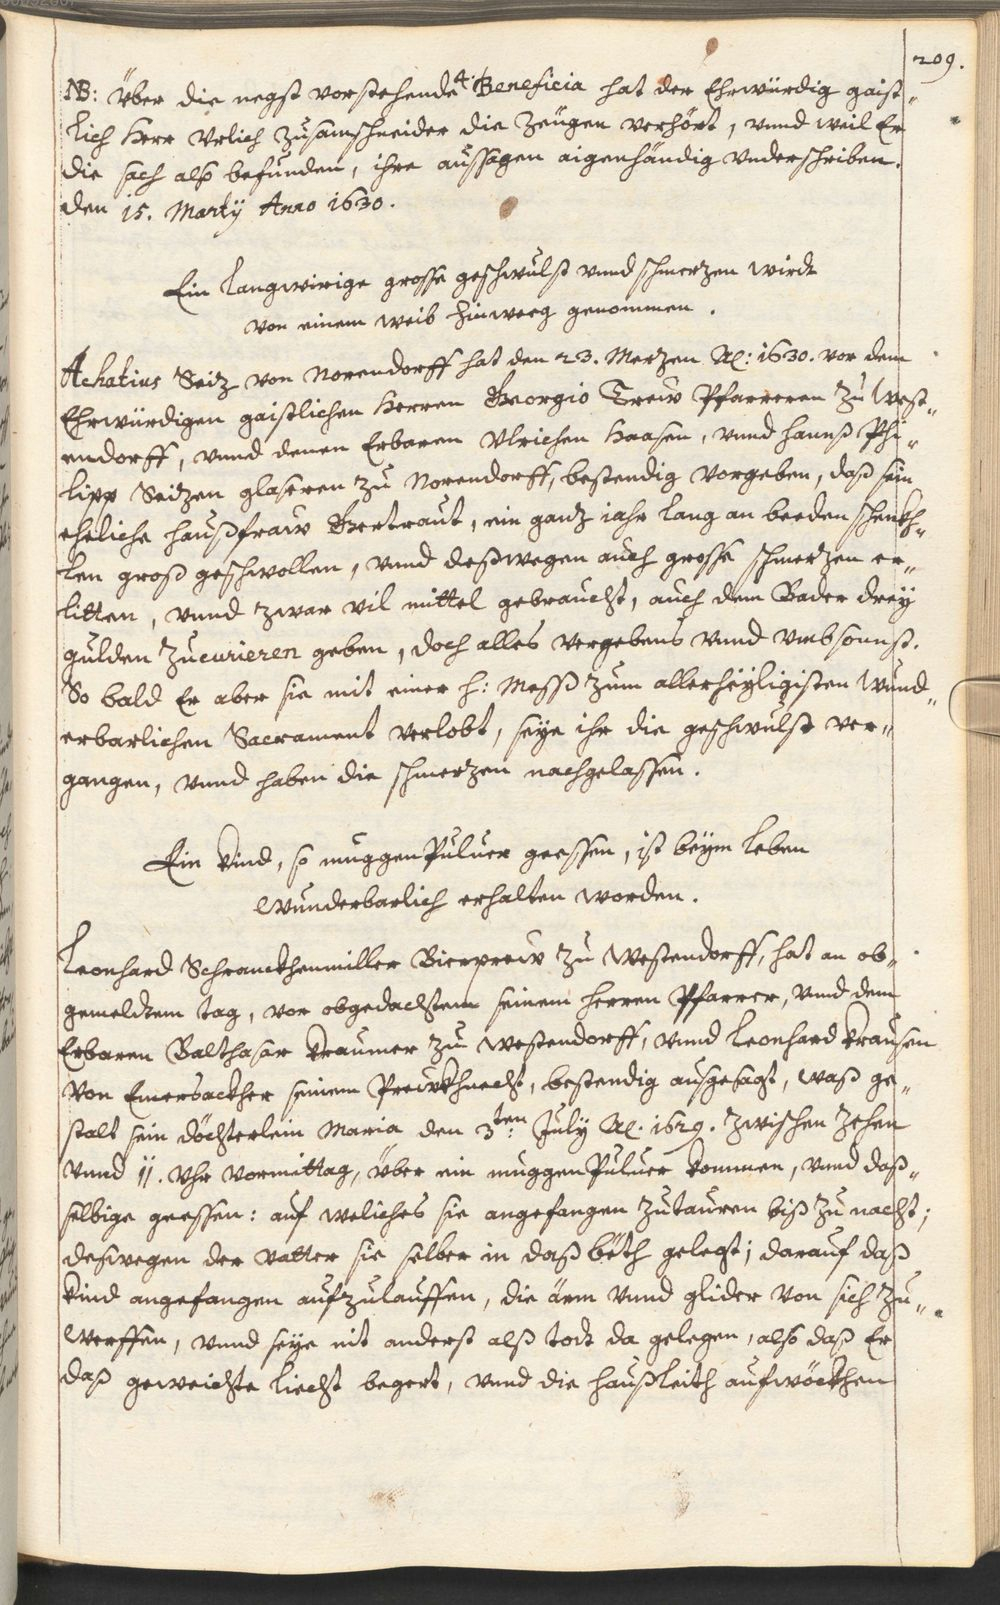 209.
NB: Über die negst vorstehende 4. Beneficia hat der Ehrwürdig gaist„
lich Herr Vrlich Zusamschneider die Zeügen verhört, vnnd weil Er
die sach alß befunden, ihre aussagen aigenhändig vnderschriben.
den 15. Martÿ Anno 1630.
Ein langwirige grosse geschwulst vnnd schmertzen wirdt
von einem weib hinweeg genommen.
Achatius Seitz von Norendorff hat den 23. Mertzen Ao: 1630. vor dem
Ehrwürdigen gaistlichen Herren Georgio Treiv Pfarreren zu West„
endorff, vnnd denen Erbaren Vlrichen Haasen, vnnd hannß Phi„
lipp Seitzen glaseren zu Norendorff, bestendig vorgeben, daß sein
eheliche haußfraw Gertraut, ein gantz iahr lang an beeden schenkh„
len groß geschwollen, vnnd deßwegen auch grosse schmertzen er„
litten, vnnd zwar vil mittel gebraucht, auch dem Bader dreÿ
gulden zucurieren geben, doch alles vergebens vnnd vmbsonst.
So bald Er aber sie mit einer h: Messß zum allerheÿligisten Wund„
erbarlichen Sacrament verlobt, seÿe ihr die geschwulst ver„
gangen, vnnd haben die schmertzen nachgelassen.
Ein kind, so muggen Puluer geessen, ist beÿm leben
wunderbarlich erhalten worden.
Leonhard Schranckhenmiller Bierprew zu Westendorff, hat an ob„
gemeldtem tag, vor obgedachtem seinem herren Pfarrer, vnnd dem
Erbaren Balthasar kraumer zu Westendorff, vnnd Leonhard krausen
von Emersackher seinem Preukhnecht, bestendig ausgesagt, waß ge„
stalt sein döchterlein Maria den 3ten: Julÿ Ao. 1629. zwischen zehen
vnnd 11. Vhr vormittag, über ein muggen Puluer kommen, vnnd daß„
selbige geessen: auf weliches sie angefangen zutauren biß zu nacht;
deswegen der vatter sie selber in daß böth gelegt; darauf daß
kind angefangen aufzulauffen, die ärm vnnd glider von sich zu„
werffen, vnnd seÿe nit anderst alß todt da gelegen, also daß Er
daß geweichte liecht begert, vnnd die haußleith aufwöckhen